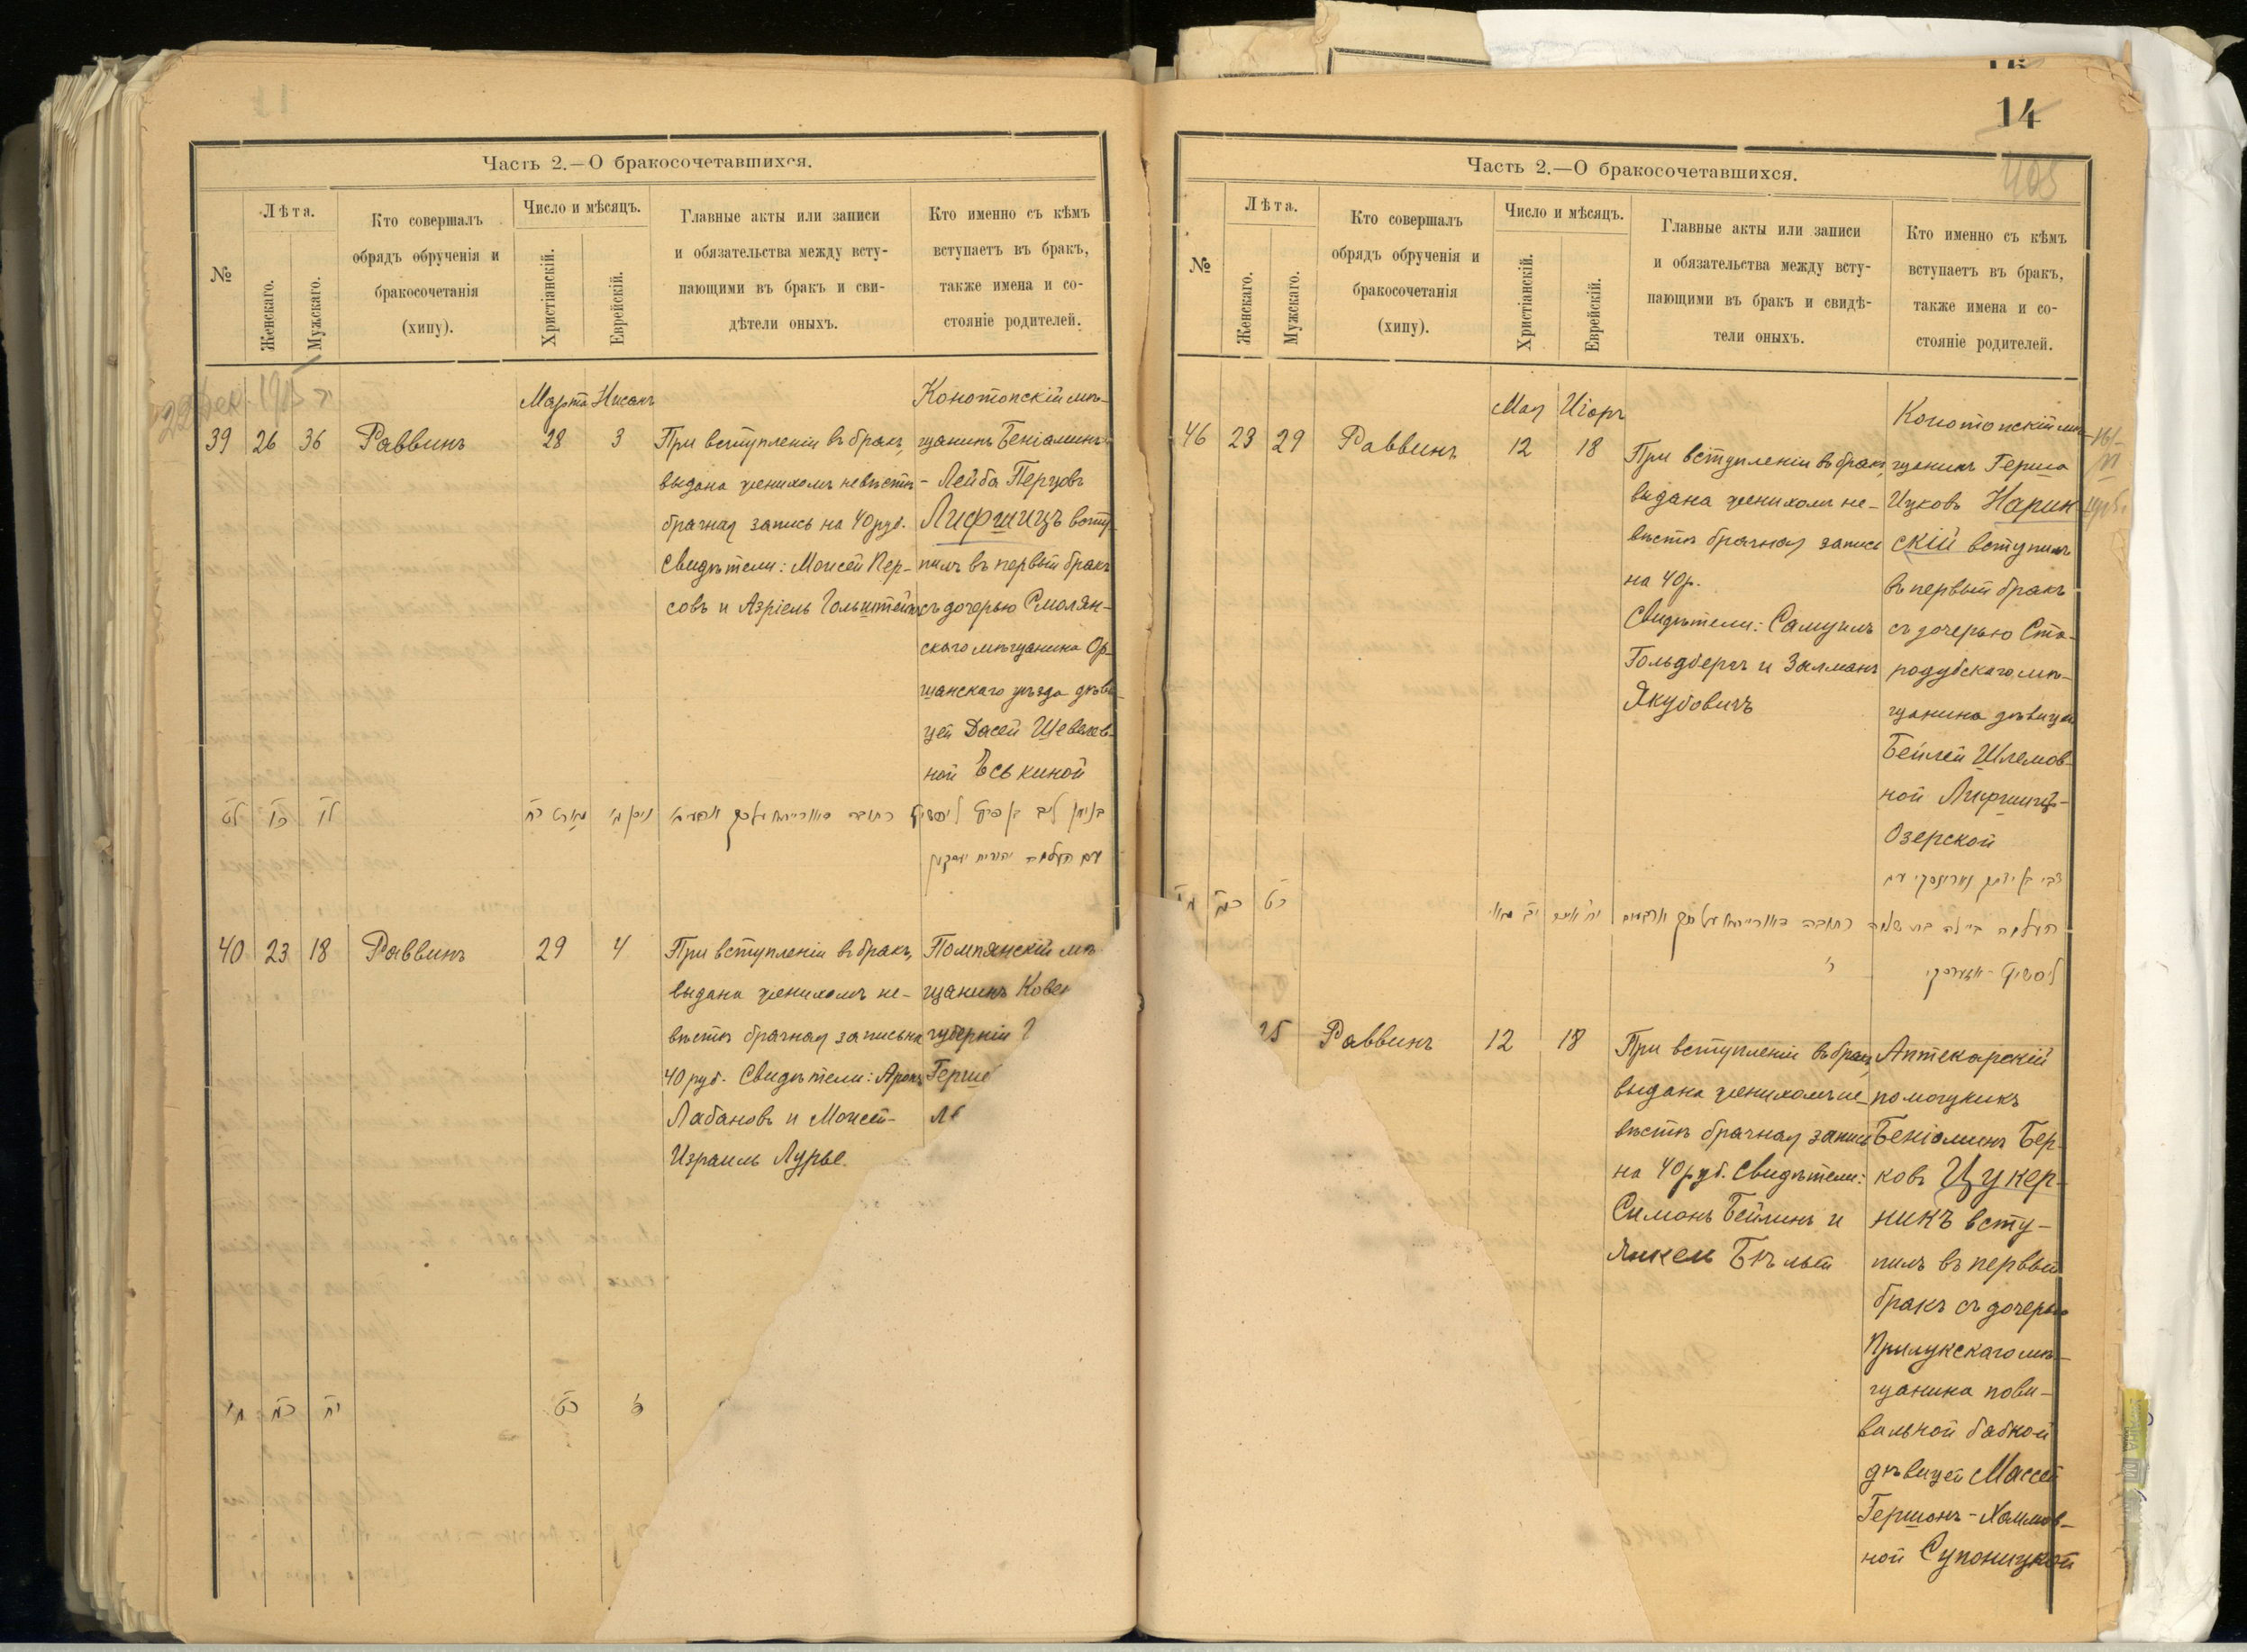 14
Часть 2.—О бракосочетавшихся.
№
Лѣта.
Женскаго.
Мужскаго.
Кто совершалъ
обрядъ обрученія и
бракосочетанія
(хипу).
Число и мѣсяцъ.
Христіанскій.
Еврейскій.
Главные акты или записи
и обязательства между всту-
пающими въ бракъ и сви-
дѣтели оныхъ.
Кто именно съ кѣмъ
вступаетъ въ бракъ,
также имена и со-
стояніе родителей.
39 26 36 Раввинъ
Марта Нисанъ
28 3
При вступленіи въ бракъ,
выдана женихомъ невѣстѣ
брачная запись на 40 руб.
Свидѣтели: Моисей Пер-
совъ и Азріель Гольштейнъ
Конотопскій мѣ-
щанинъ Беніаминъ
- Лейба Перцовъ
Лифшицъ всту-
пилъ въ первый бракъ
съ дочерью Смолян-
скаго мѣщанина Ор-
шанскаго уѣзда дѣви-
цей Дасей Шевелев-
ной Еськиной
לט כו לו
40 23 18 Раввинъ 29 4
При вступленіи въ бракъ,
выдана женихомъ не-
вѣстѣ брачная запись на
40 руб. Свидѣтели: Аронъ
Лабановъ и Моисей-
Израиль Лурье.
Помпянскій мѣ
щанинъ Ковен
губерніи
Герше
מ כג יח כט ד
Часть 2.—О бракосочетавшихся.
№
Лѣта.
Женскаго.
Мужскаго.
Кто совершалъ
обрядъ обрученія и
бракосочетанія
(хипу).
Число и мѣсяцъ.
Христіанскій.
Еврейскій.
Главные акты или записи
и обязательства между всту-
пающими въ бракъ и свидѣ-
тели оныхъ.
Кто именно съ кѣмъ
вступаетъ въ бракъ,
также имена и со-
стояніе родителей.
46 23 29 Раввинъ
Мая Иіоръ
12 18
При вступленіи въ бракъ,
выдана женихомъ не-
вѣстѣ брачная запись
на 40 р.
Свидѣтели: Самуилъ
Гольдбергъ и Залманъ
Якубовичъ
Конотопскій мѣ-
щанинъ Герша
Ицковъ Нарин
скій вступилъ
въ первый бракъ
съ дочерью Ста-
родубскаго мѣ-
щанина дѣвицей
Бейлей Шлемов-
ной Лифшицъ-
Озерской
25 Раввинъ 12 18
При вступленіи въ бракъ,
выдана женихомъ не-
вѣстѣ брачная запись
на 40 руб. Свидѣтели:
Симонъ Бейлинъ и
Янкель
Аптекарскій
помощникъ
Беніаминъ Бер-
ковъ Цукер-
никъ всту-
пилъ въ первый
бракъ съ дочерью
Прилукскаго мѣ-
щанина пови-
вальной бабкой
дѣвицей Массей
Гершонъ-Хаимов-
ной Супоницкой